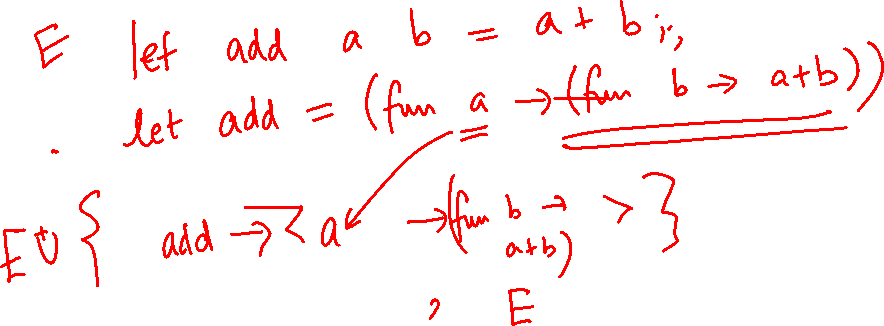 E let add a b = a + b ;;
. let add = (fun a → (fun b → a+b))
E ⊎ { add → < a → (fun b → > }
a+b)
, E